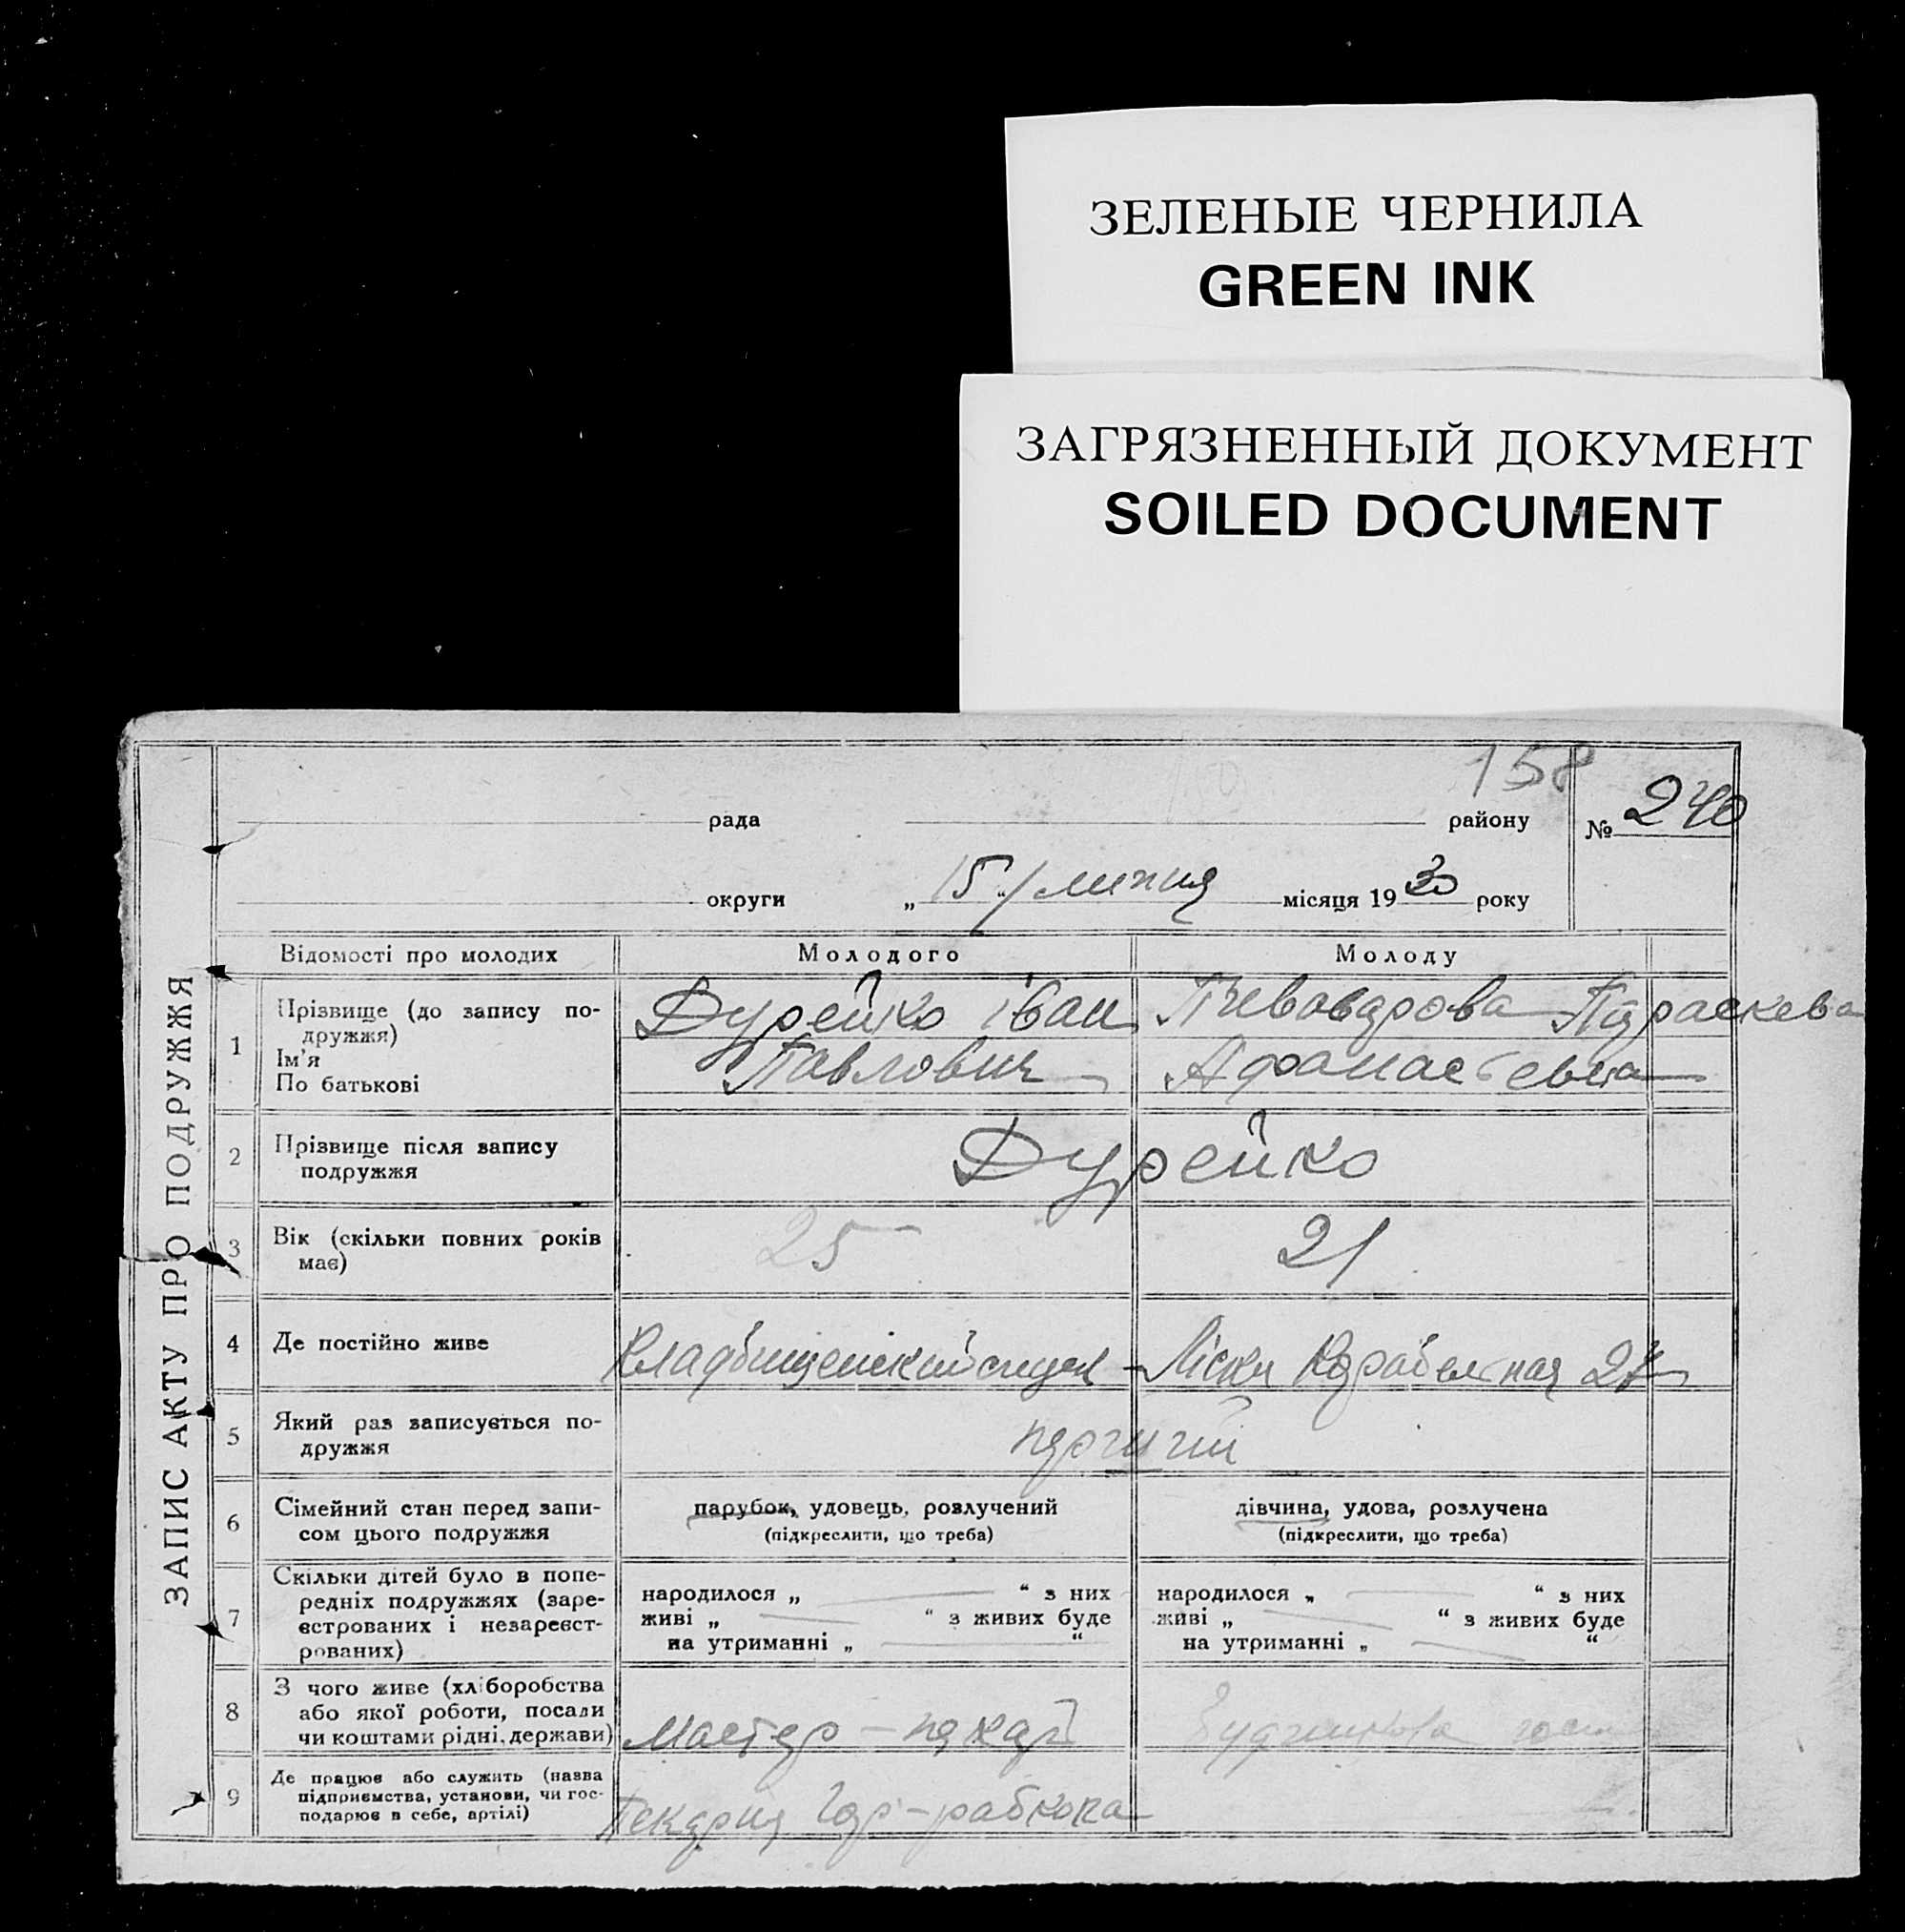 ЗЕЛЕНЫЕ ЧЕРНИЛА
GREEN INK
ЗАГРЯЗНЕННЫЙ ДОКУМЕНТ
SOILED DOCUMENT
158
рада району № 240
округи „15“ липня місяця 1930 року
ЗАПИС АКТУ ПРО ПОДРУЖЖЯ
Відомості про молодих Молодого Молоду
1 Прізвище (до запису по-
дружжя)
Ім’я
По батькові
Дурейко Іван
Павлович
Параскева
Афанасьевна
2 Прізвище після запису
подружжя
Дурейко
3 Вік (скільки повних років
має)
25 21
4 Де постійно живе
Ліски Корабельная
5 Який раз записується по-
дружжя
перший
6 Сімейний стан перед запи-
сом цього подружжя
парубок, удовець, розлучений
(підкреслити, що треба)
дівчина, удова, розлучена
(підкреслити, що треба)
7 Скільки дітей було в попе-
редніх подружжях (заре-
єстрованих і незареєст-
рованих)
народилося „ “ з них
живі „ “ з живих буде
на утриманні „ “
народилося „ “ з них
живі „ “ з живих буде
на утриманні „ “
8 З чого живе (хліборобства
або якої роботи, посади
чи коштами рідні, держави)
мастер - пекар
9 Де працює або служить (назва
підприємства, установи, чи гос-
подарює в себе, артілі)
Пекарня Гор-рабкопа